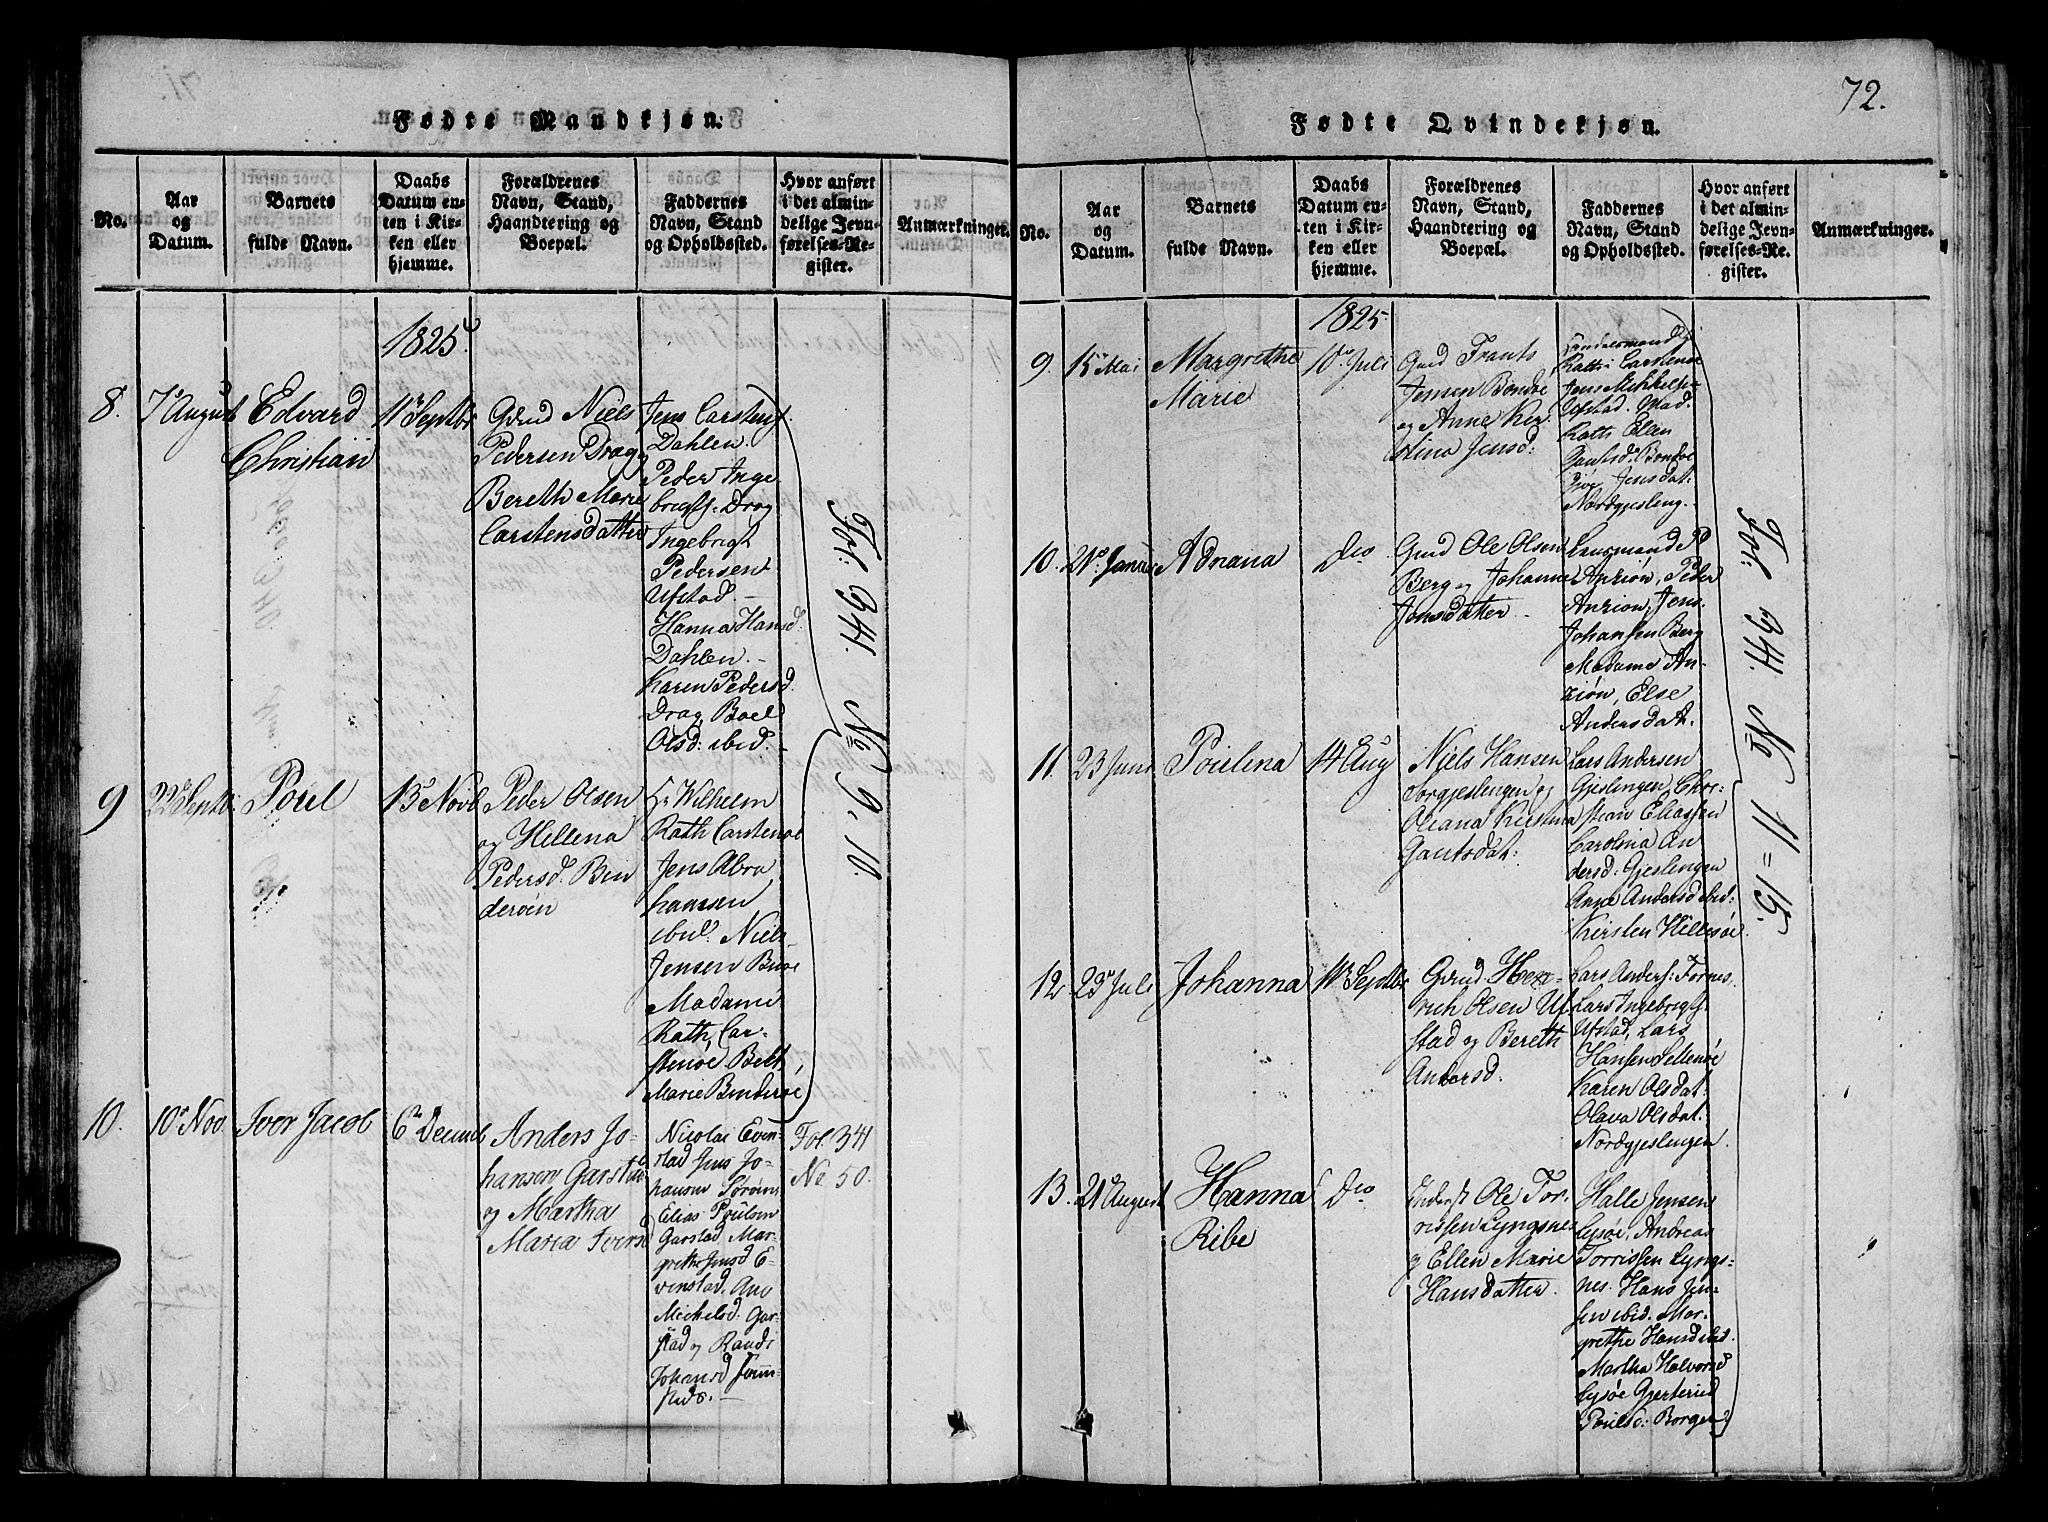 Fødte Mandkjøn.
No.
Aar
og
Datum.
Barnets
fulde Navn.
Daabs
Datum en-
ten i Kir-
ken eller
hjemme.
Forældrenes
Navn, Stand,
Haandtering og
Boepæl.
Faddernes
Navn, Stand
og Opholdssted.
Hvor anført
i det almin-
delige Jevn-
førelses-Re-
gister.
Anmærkninger.
1825
8.
7 August
Edvard
Christian
11 Septbr
Niels
Pedersen Drag
Bereth Marie
Carstensdatter
Jens Carstens
Dahlen.
Peder Inge
brigts. Drag
Ingebrigt
Pedersen
Ufstad.
Hanna Hansd.
Dahlen.
Karen Pedersd.
Drag, Boel
Olsd: ibid.
Fol: 341. No 8, 9, 10.
9
22 Septbr
Poul
13 Novb
Peder Olsen
og Hellena
Pedersd. Ben
derøen
Hr Wilhelm
Rath Carstenøe
Jens Abra
hamsen
ibid: Niels
Jensen
Madame
Rath, Car-
stenøe
Marie Benderøe
10.
10 Nov
Iver Jacob
6 Decemb
Anders Jo-
hansen Garstad
og Martha
Maria Iversd
Nicolai Even-
stad Jens Jo-
hansen
Elias Poulsen
Garstad, Mar-
grethe Jensd E-
venstad, Ane
Michelsd. Gar-
stad og Randi
Johansd
Fol. 341
No. 50.
72.
Fødte Qvindekjøn.
No.
Aar
og
Datum.
Barnets
fulde Navn.
Daabs
Datum en-
ten i Kir-
ken eller
hjemme.
Forældrenes
Navn, Stand,
Haandtering og
Boepæl.
Faddernes
Navn, Stand
og Opholdssted.
Hvor anført
i det almin-
delige Jevn-
førelses-Re-
gister.
Anmærkninger.
1825
9.
15 Mai
Margrethe
Marie
10 Juli
Jensen Bondøe
og Anne Kir
stina Jensd:
Rath i Carstenøe
Ufstad. Mad.
Rath. Elen
Jensdat:
Nordgjesling.
10.
21 Januar
Adriana
Do
Ole Olsen
Berg og Johanna
Jensdatter
Anzion, Peder
Anzion, Jens
Johansen Berg
Madame An-
zion, Else
Andersdat.
Fol: 341. No 11 = 15.
11.
23 Juni
Poulena
14 Aug
Niels Hansen
Sørgjeslingen og
Oleana Kirstina
Gautsdat:
Lars Andersen
Gjeslingen, Chri-
stian Eliassen
Carolina An
dersd: Gjeslingen
Anne Andersd ibid:
Kirsten Hillesøe.
12
23 Juli
Johanna
11 Septbr
Hen-
rich Olsen Uf
stad og Bereth
Andersd.
Lars Anders: Fornes,
Lars Ingebrigts.
Ufstad, Lars
Hansen
Karen Olsdat.
Olava Olsdat:
Nordgjeslingen.
13.
21 August
Hanna
Ribe
Do
Ole Tor-
rissen Lyngsnes
og Ellen Marie
Hansdatter.
Halle Jensen
Lysøe, Andreas
Torrissen Lyngs-
nes. Hans Jen-
sen ibid. Mar-
grethe Hansd ibid.
Martha Halvorsd
Lysøe
Poulsd: Borgen